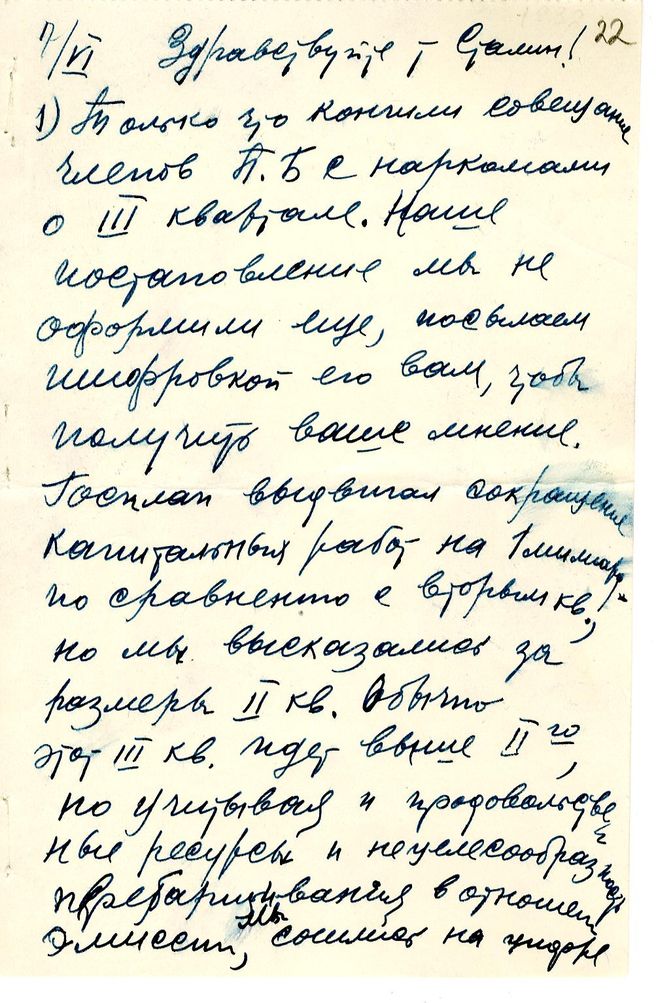 22
7/VI Здравствуйте т Сталин!
1) Только что кончили совещание
членов П.Б с наркомами
о III квартале. Наше
постановление мы не
оформили еще, посылаем
шифровкой его вам, чтобы
получить ваше мнение.
Госплан выдвигал сокращение
капитальных работ на 1 миллиард
по сравнению с вторым кв.,
но мы высказались за
размеры II кв. Обычно
этот III кв. идет выше II го,
но учитывая и продовольствен
ные ресурсы и нецелесообразность
пребарщивания в отношен
эмиссии, мы сошлись на цифре